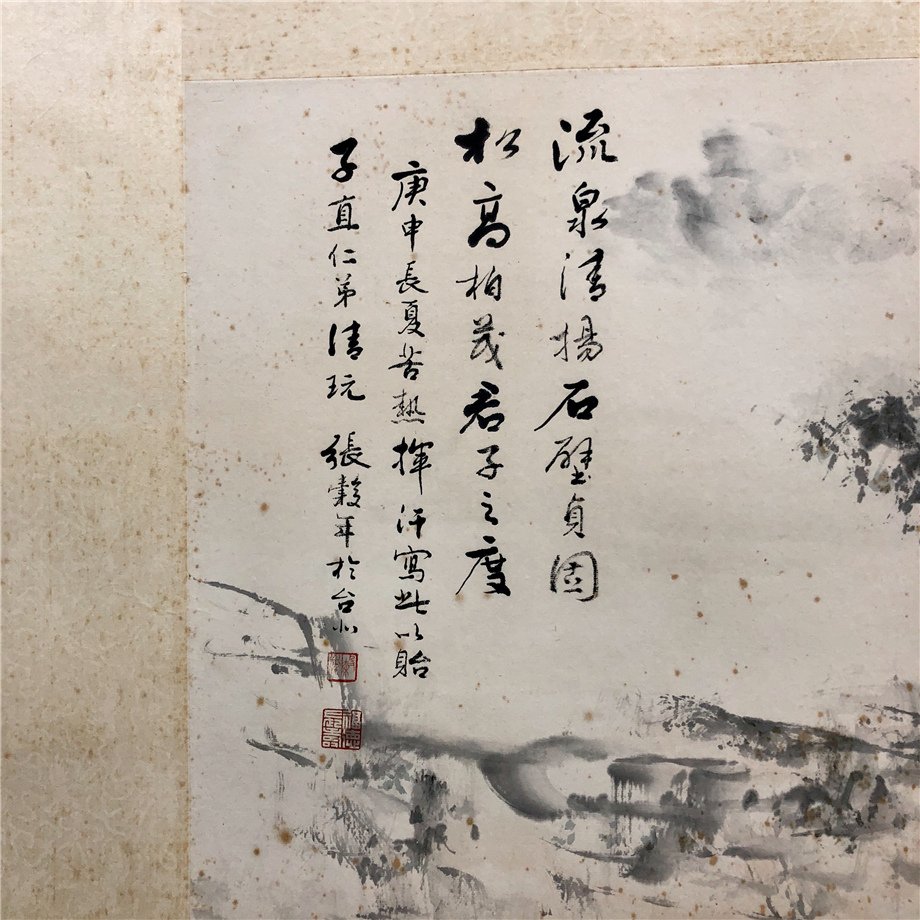 流泉清揚石壁貞固
松高柏茂君子之度
庚申長夏苦熱揮汗寫此以貽
子直仁弟清玩 張穀年於台北